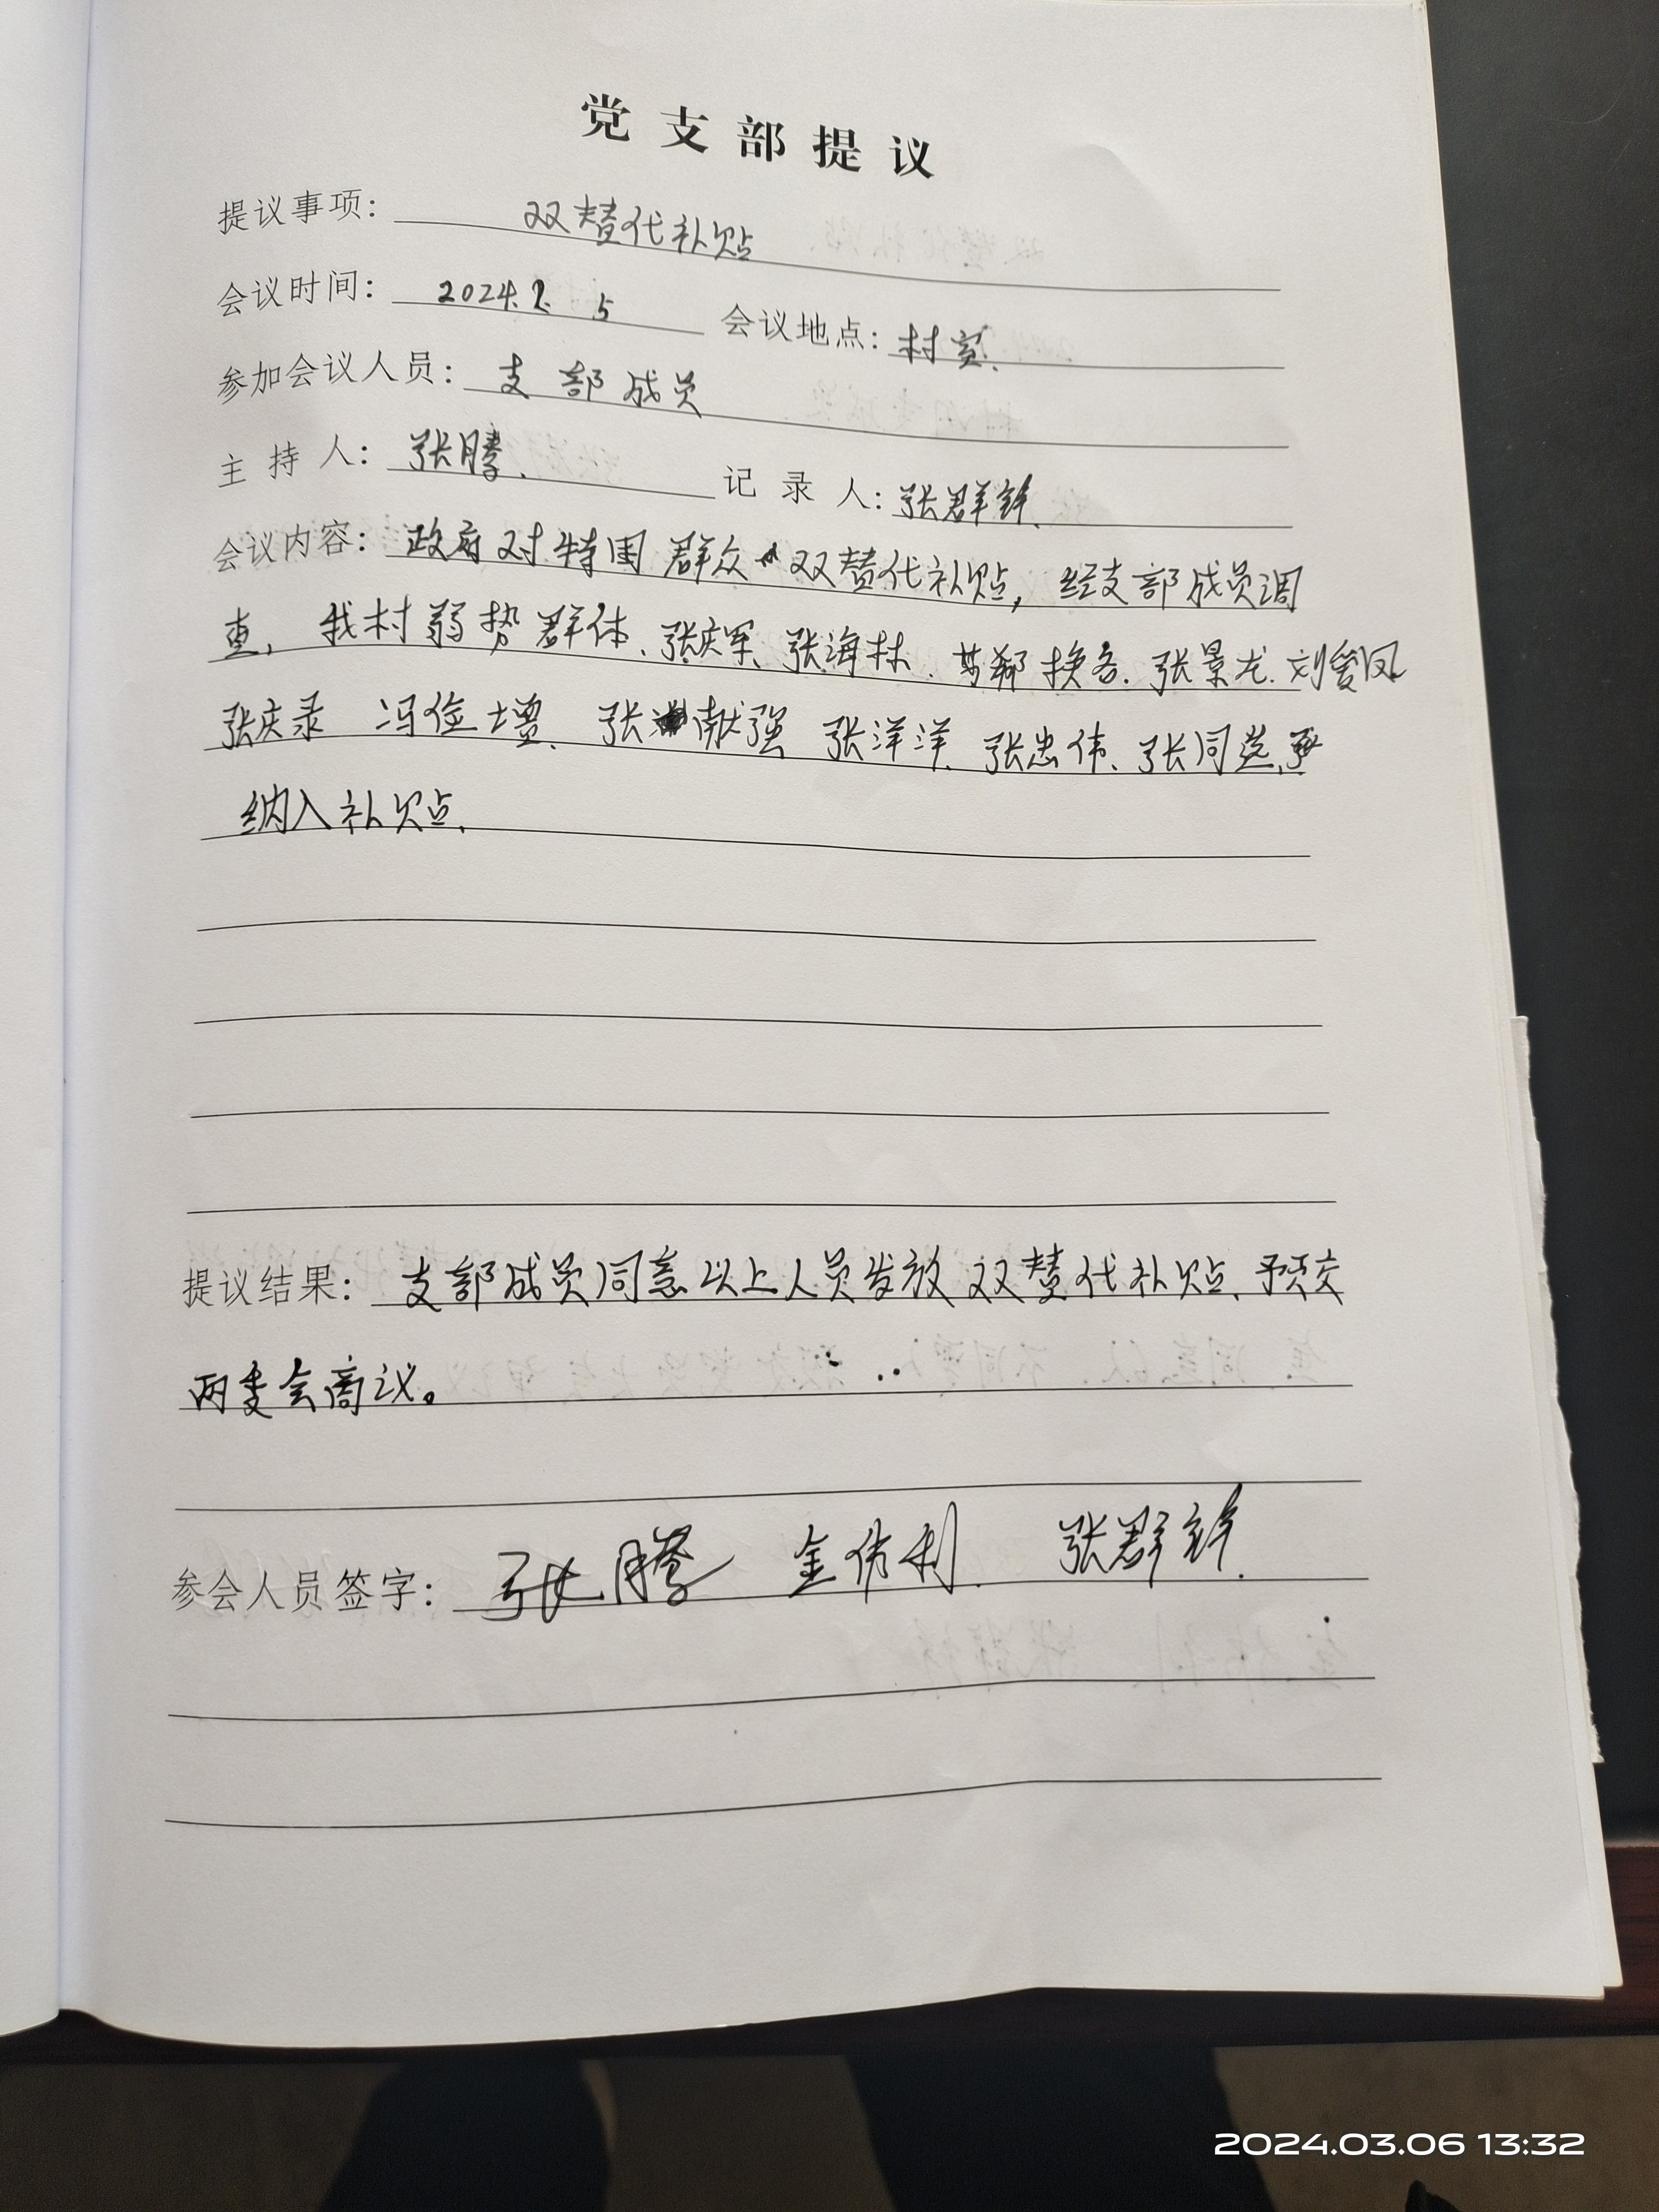 党支部提议
提议事项： 双替代补贴
会议时间： 2024.2.5 会议地点：村室.
参加会议人员： 支部成员
主持人： 张腾. 记录人：张群锋.
会议内容： 政府对特困群众 双替代补贴，经支部成员调
查，我村弱势群体、张庆军、张海林、 张景龙.刘爱凤
张庆录 冯俭增、张献强 张洋洋、张忠伟、张同选
纳入补贴.
提议结果： 支部成员同意以上人员发放双替代补贴、预交
两委会商议。
参会人员签字： 张腾 金伟利. 张群锋.
2024.03.06 13:32